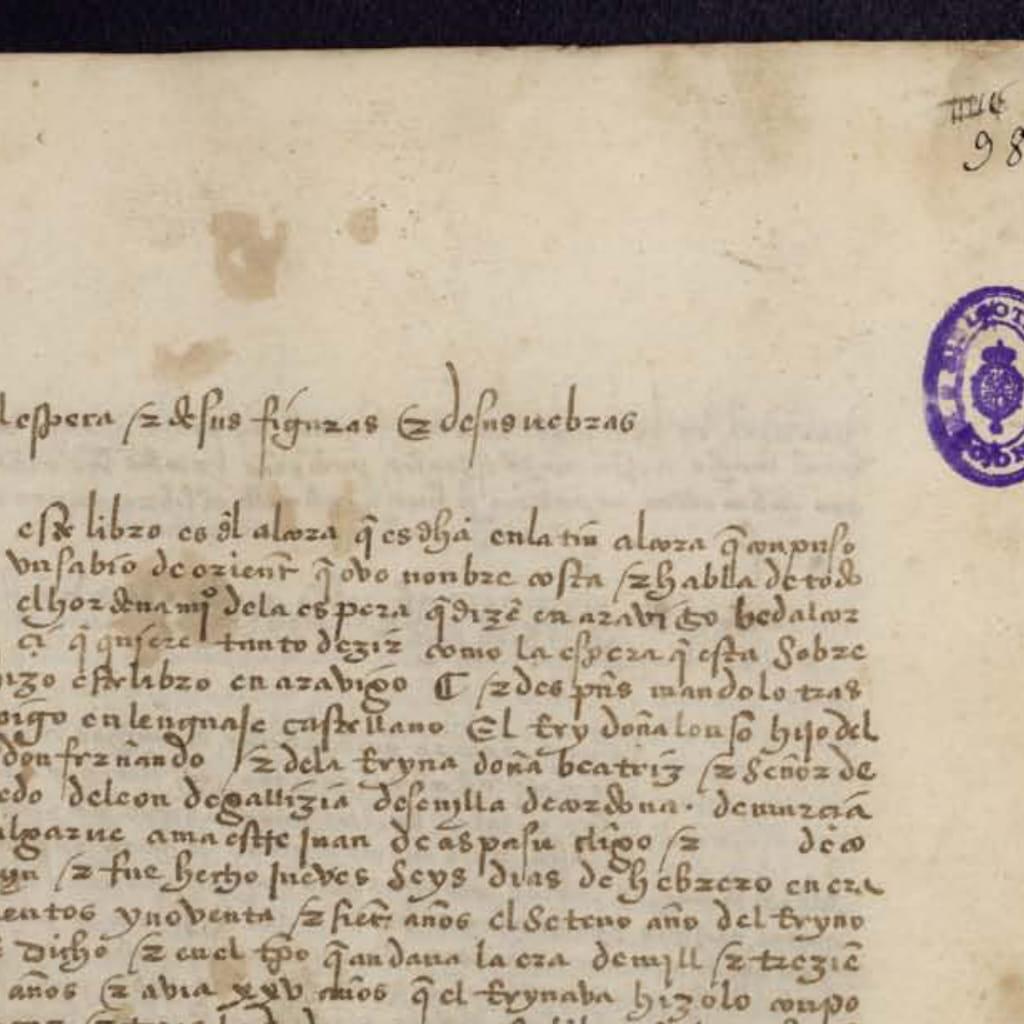 98
BIBLIOT
espera & de sus figuras & de sus uebras
este libro es dl alcora q̄ es dha en latin alcora q̄ conpuso
vn sabio de orient q̄ ovo nonbre costa & habla de todo
el hordenamiº de la espera q̄ dizē en aravigo bedalcor
ci q̄ quiere tanto dezir como la espera q̄ esta sobre
este libro en aravigo ¶ & despns mandolo tras
en lenguaje castellano El Rey don alonso hijo del
don fernando & de la Reyna doña beatriz & señor de
de leon de gallizia de sevilla de cordova. de murcia
algarve a maestre juan de aspa su cligo & de co
& fue hecho jueves seys dias de hebrero en era
entos y noventa & siet años el seteno año del Reyno
dicho & en el tpo q̄ andava la era de mill & trezie
años & avia xxv años q̄ el Reynava hizolo conpo